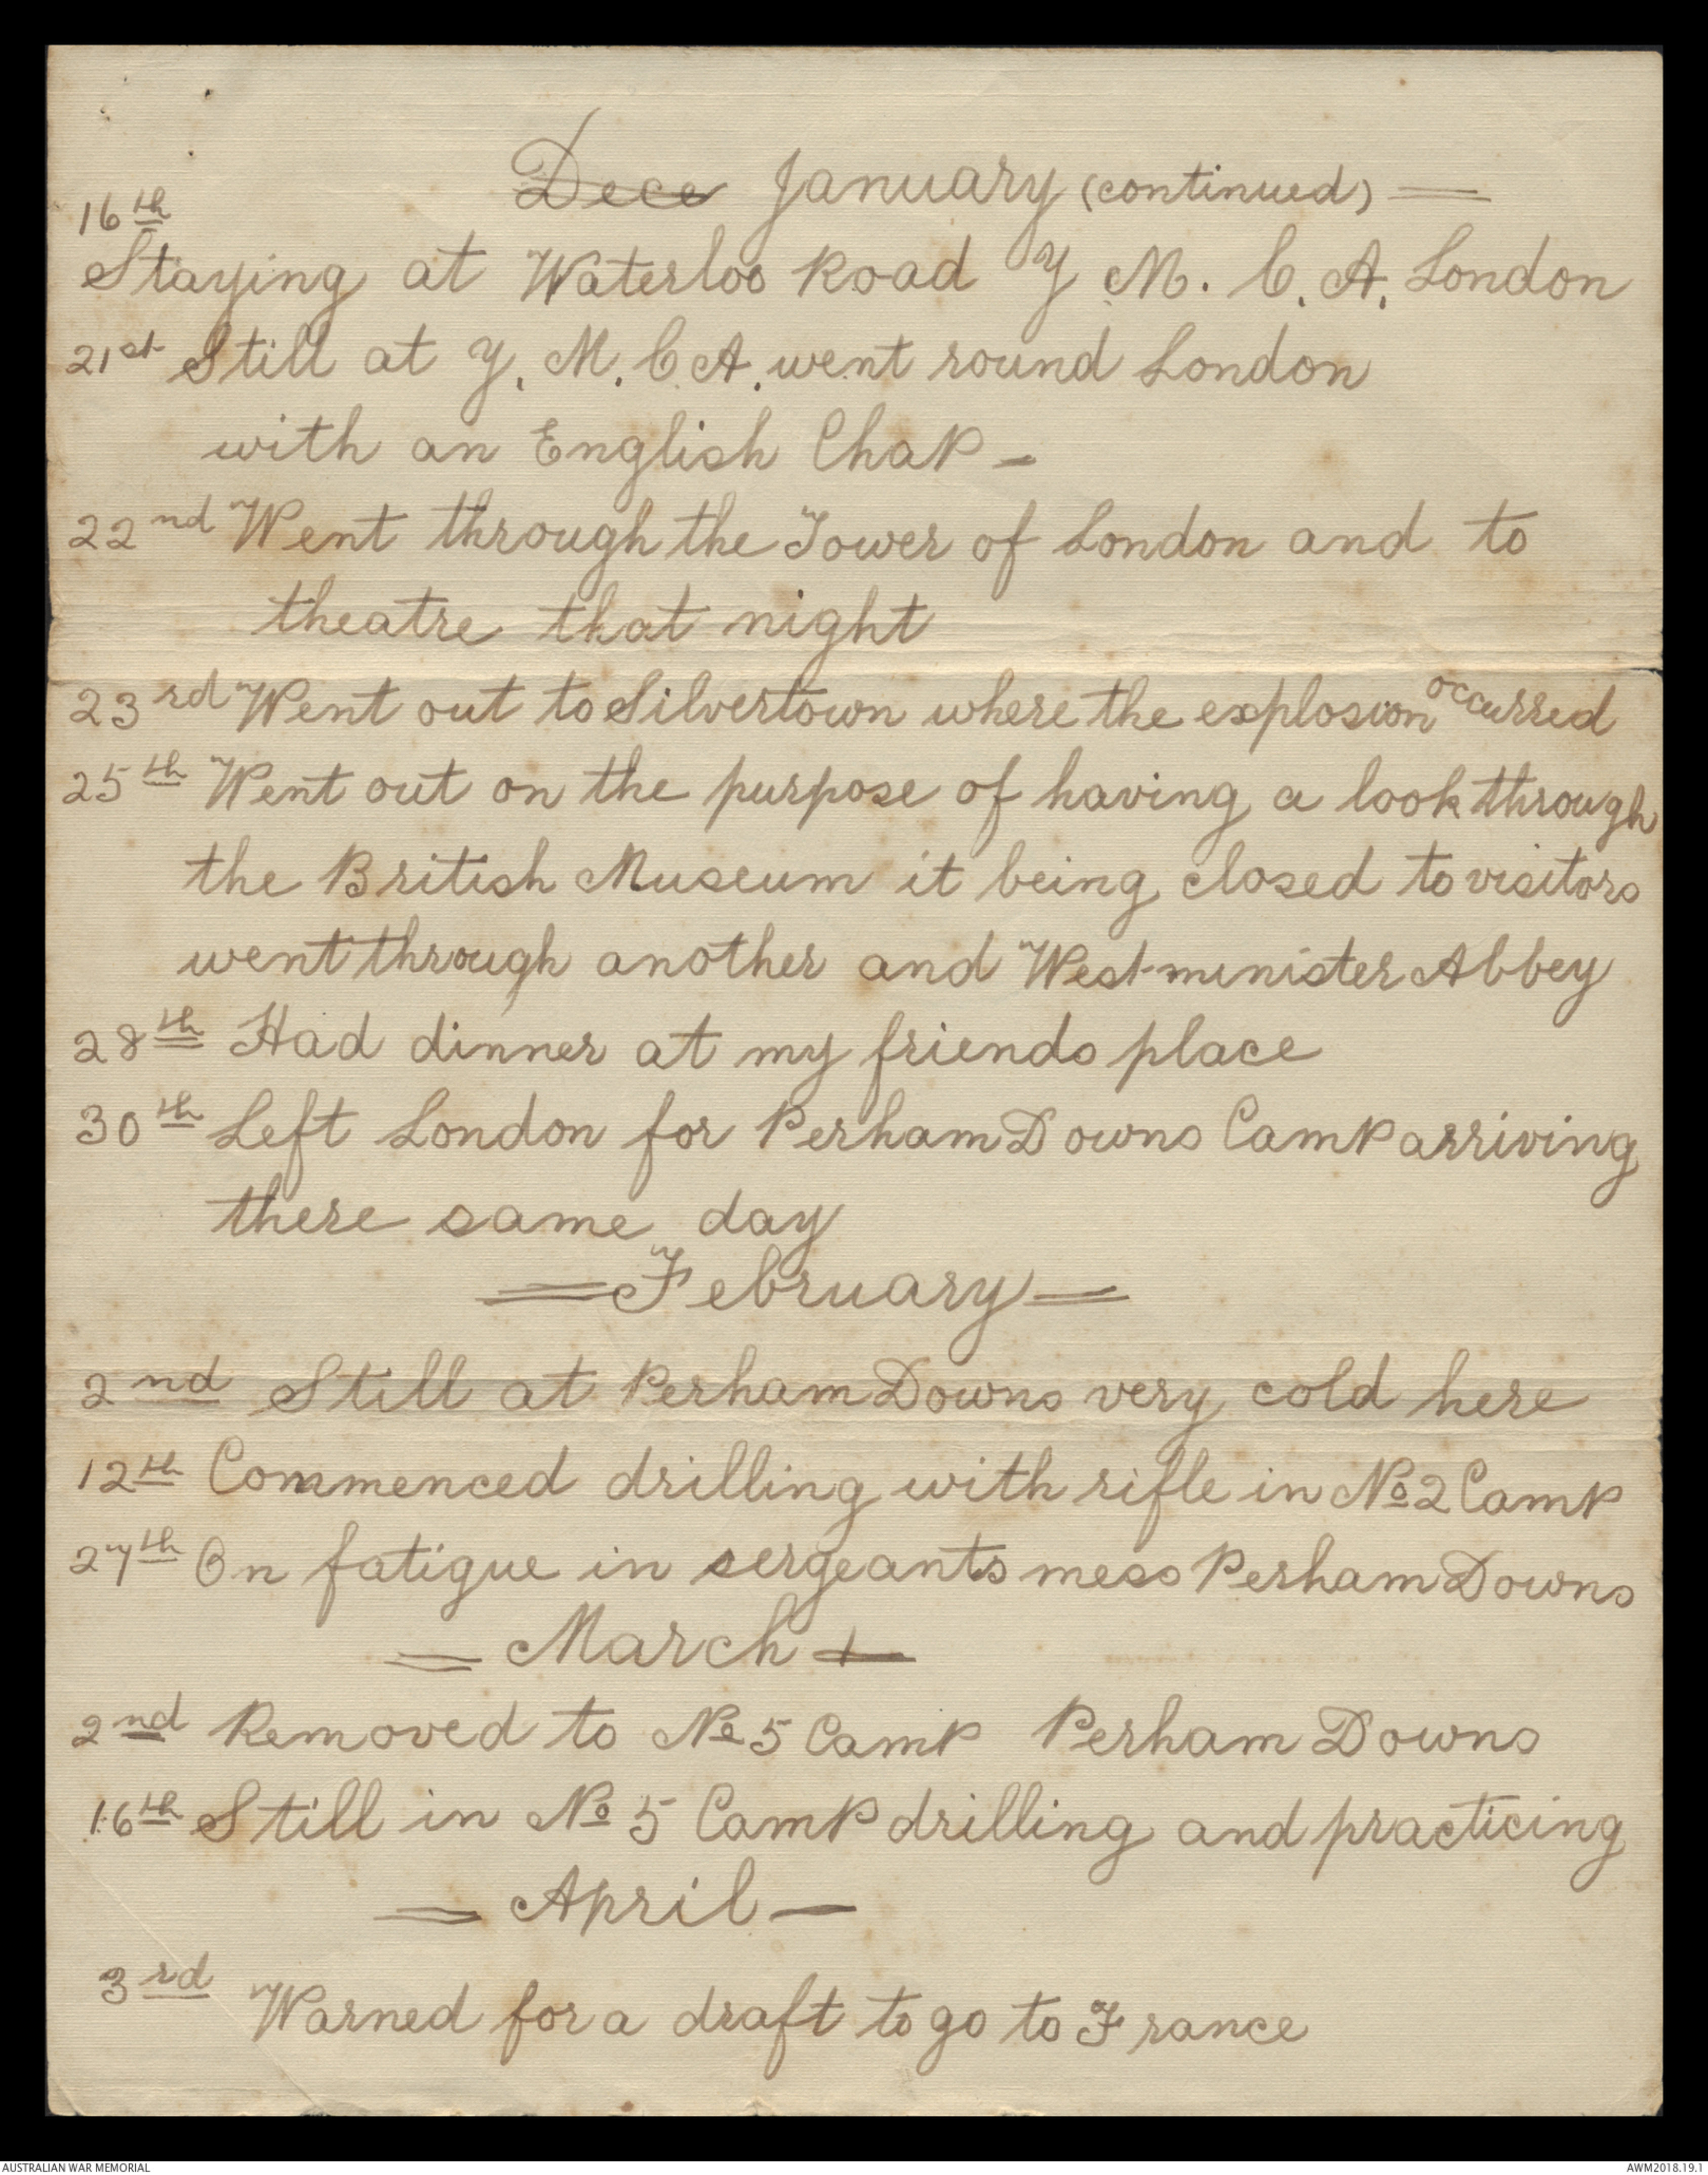 Dece January (continued) =
16th
Staying at Waterloo Road Y M. C. A. London
21st Still at Y. M. C. A. went round London
with an English Chap -
22nd Went through the Tower of London and to
theatre that night
23rd Went out to Silvertown where the explosion occurred
25th Went out on the purpose of having a look through
the British Museum it being closed to visitors
went through another and Westminister Abbey
28th Had dinner at my friends place
30th Left London for Perham Downs Camp arriving
there same day
= February =
2nd Still at Perham Downs very cold here
12th Commenced drilling with rifle in No 2 Camp
27th On fatigue in sergeants mess Perham Downs
= March =
2nd Removed to No 5 Camp Perham Downs
16th Still in No 5 Camp drilling and practicing
= April -
3rd Warned for a draft to go to France
AUSTRALIAN WAR MEMORIAL AWM2018.19.1